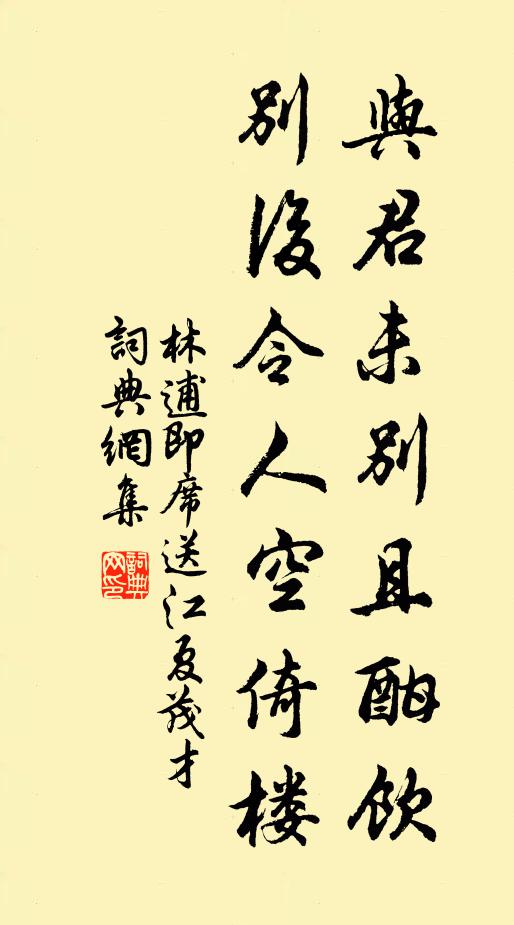 與君未別且酣飲
別後令人空倚樓
林逋即席送江夏茂才
詞典網集
詞典網印